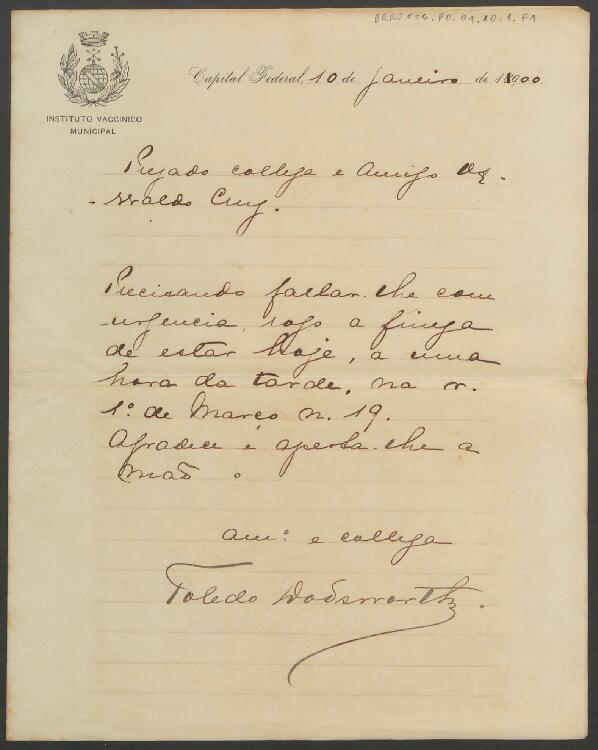 BRRJCOC.FO.01.10.1.F1
Capital Federal, 10 de Janeiro de 1900
INSTITUTO VACCINICO
MUNICIPAL
Prezado collega e Amigo Os-
-waldo Cruz.
Precisando fallar-lhe com
urgencia, rogo a fineza
de estar hoje, a uma
hora da tarde, na r.
1º de Março n. 19.
Agradece e aperta-lhe a
mão
amº e collega
Toledo Dodsworth.